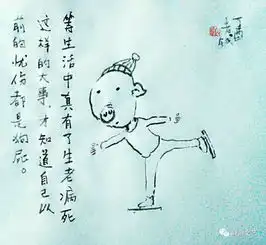 等生活中真有了生老病死
这样的大事，才知道自己以
前的忧伤都是狗屁。
丁酉